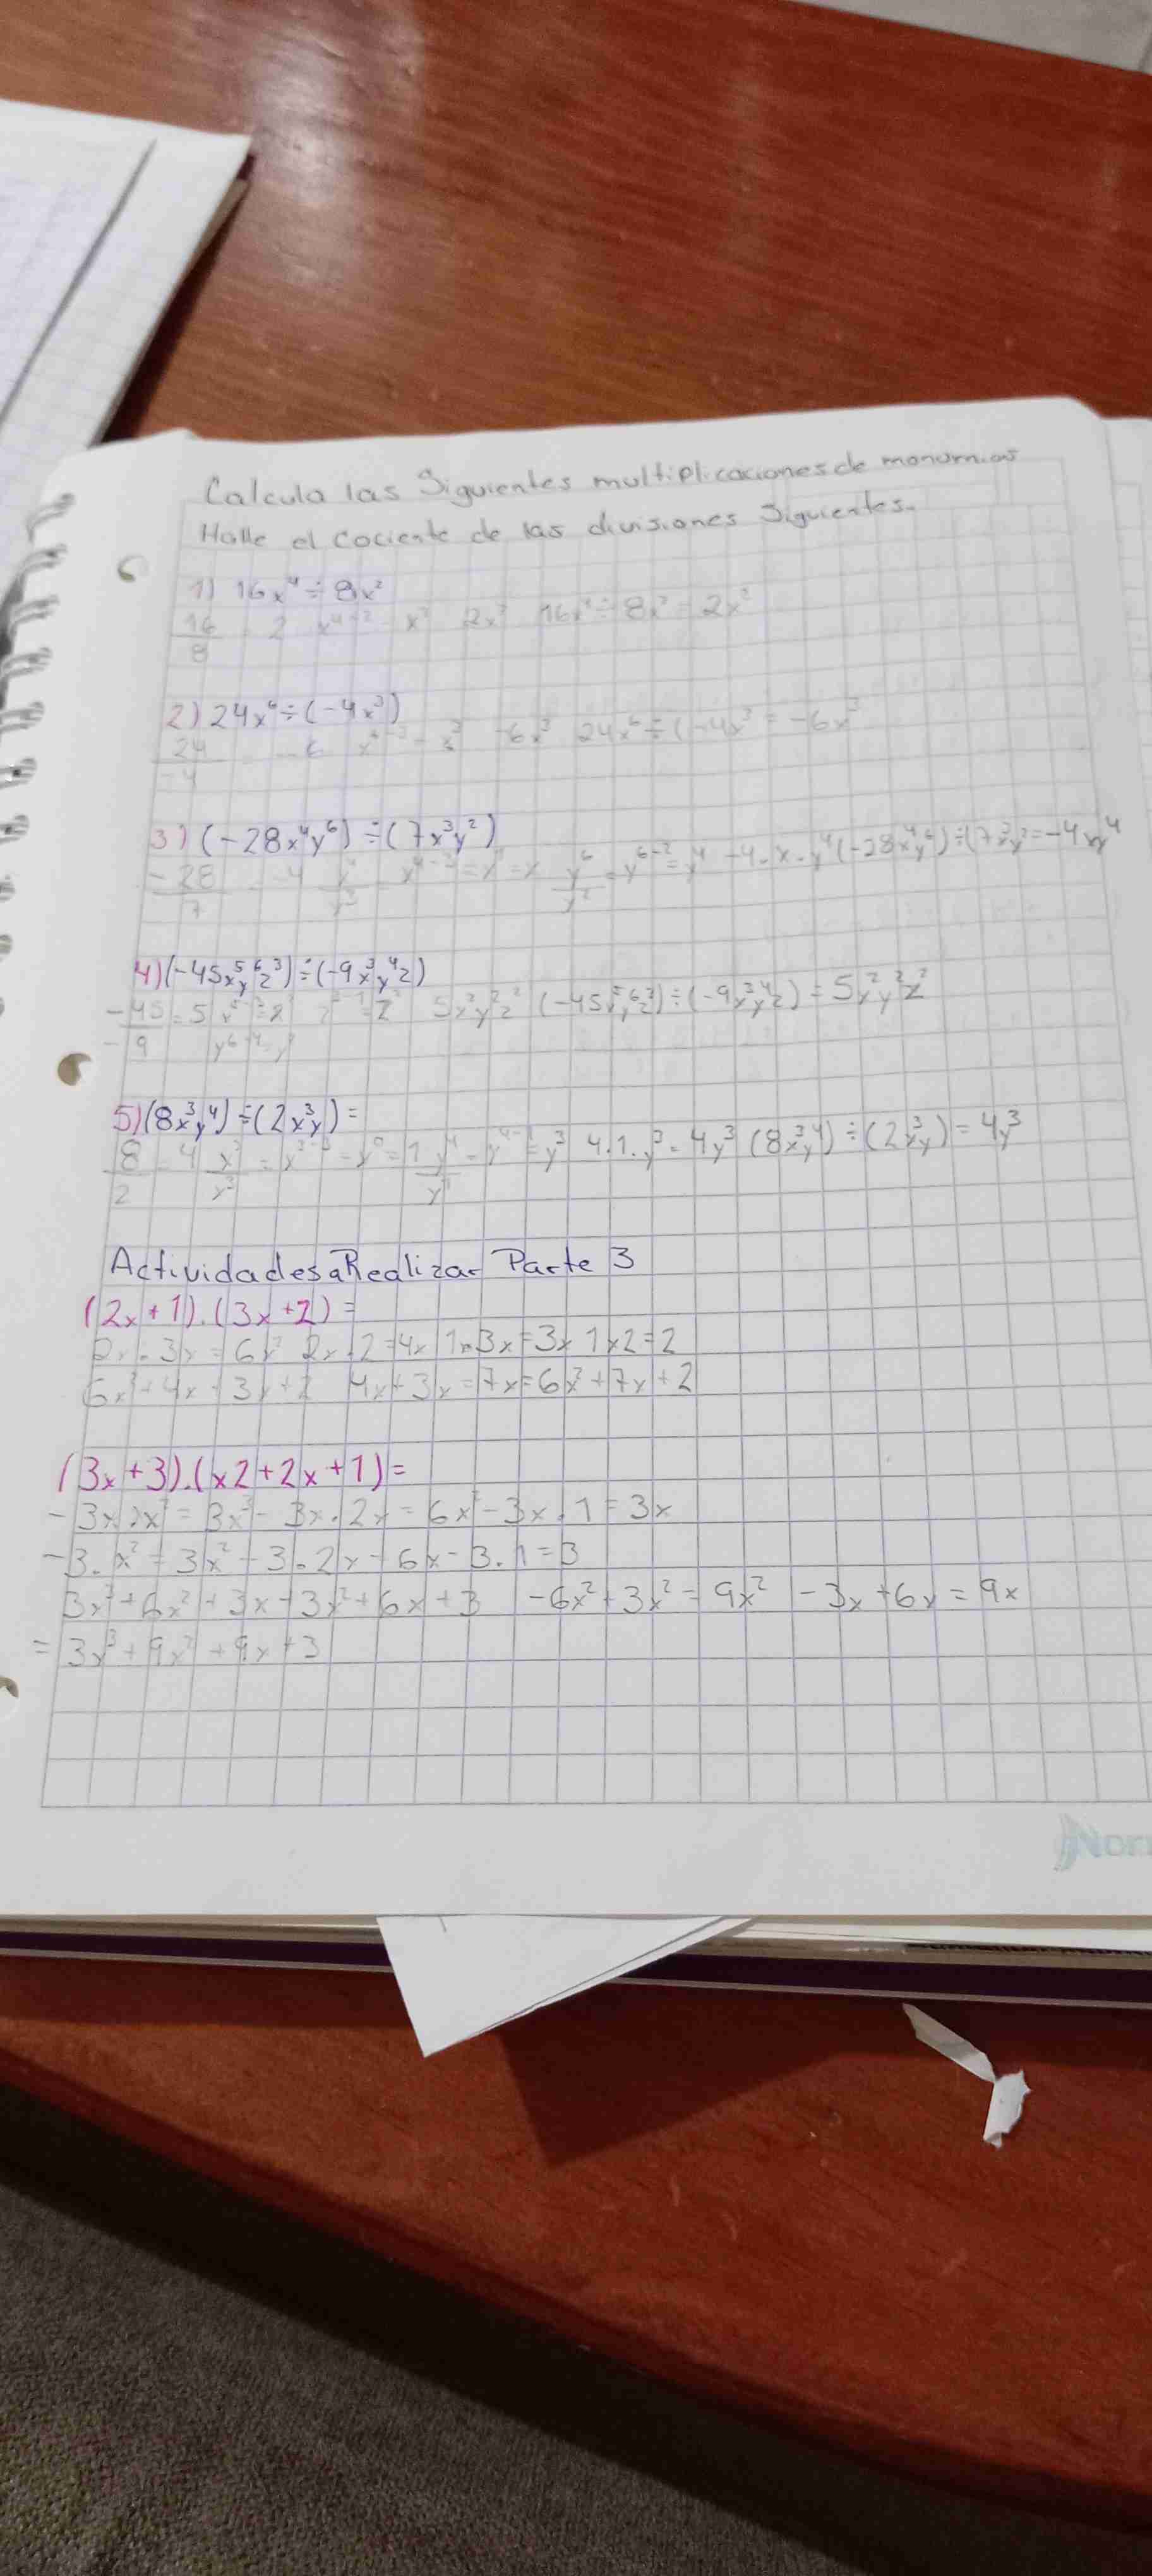 Calcula las Siguientes multiplicaciones de monomios
Halle el cociente de las divisiones siguientes.
1) 16x⁴ ÷ 8x²
16/8 = 2 x⁴⁻² = x² 2x² 16x⁴ ÷ 8x² = 2x²
2) 24x⁶ ÷ (-4x³)
24/-4 = -6 x⁶⁻³ = x³ -6x³ 24x⁶ ÷ (-4x³ = -6x³
3) (-28x⁴y⁶) ÷ (7x³y²)
-28/7 = -4 x⁴/x³ = x⁴⁻³ = x¹ = x y⁶/y² = y⁶⁻² = y⁴ -4 . x . y⁴ (-28x⁴y⁶) ÷ (7x³y² = -4xy⁴
4) (-45x⁵y⁶z³) ÷ (-9x³y⁴z)
-45/-9 = 5 x⁵⁻³ = x² z³⁻¹ = z² 5x²y²z² (-45x⁵y⁶z³) ÷ (-9x³y⁴z) = 5x²y²z²
y⁶⁻⁴ = y²
5) (8x³y⁴) ÷ (2x³y) =
8/2 = 4 x³/x³ = x³⁻³ = x⁰ = 1 y⁴/y¹ = y⁴⁻¹ = y³ 4 . 1 . y³ = 4y³ (8x³y⁴) ÷ (2x³y) = 4y³
Actividades a Realizar Parte 3
(2x + 1) . (3x + 2) =
2x . 3x = 6x² 2x . 2 = 4x 1 . 3x = 3x 1 x 2 = 2
6x² + 4x + 3x + 2 4x + 3x = 7x = 6x² + 7x + 2
(3x + 3) . (x2 + 2x + 1) =
- 3x . x² = 3x³ - 3x . 2x = 6x² - 3x . 1 = 3x
- 3 . x² = 3x² - 3 . 2x = 6x - 3 . 1 = 3
3x³ + 6x² + 3x + 3x² + 6x + 3 - 6x² + 3x² = 9x² - 3x + 6x = 9x
= 3x³ + 9x² + 9x + 3